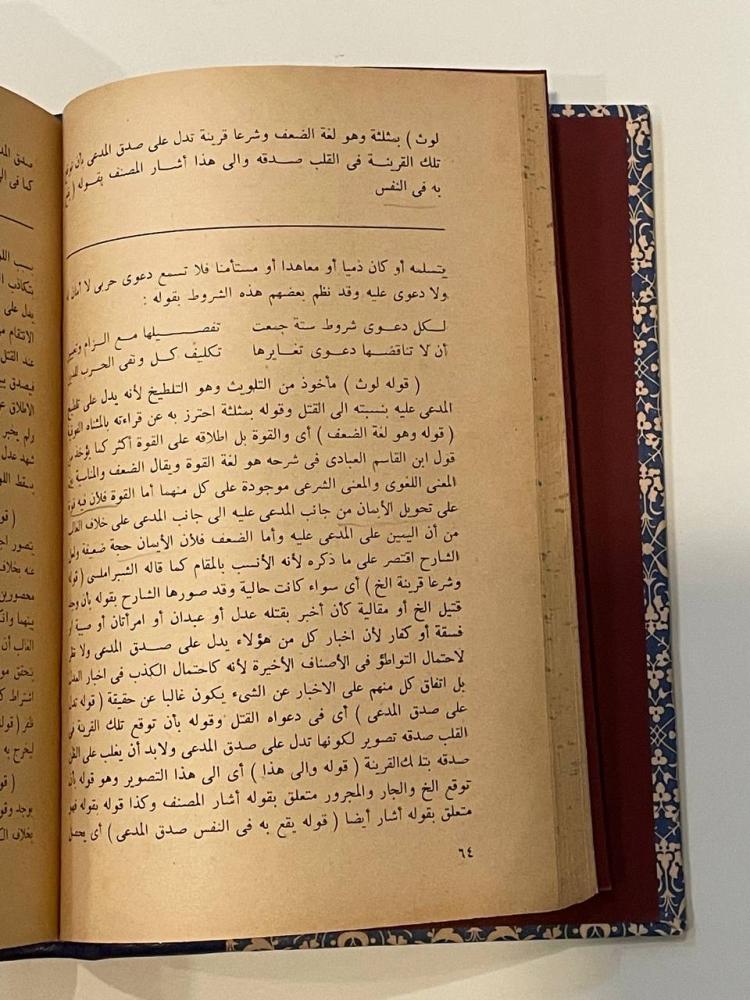 لوث ) بمثلثة وهو لغة الضعف وشرعا قرينة تدل على صدق المدعى بأن توقع
تلك القرينة فى القلب صدقه والى هذا أشار المصنف بقوله ( يقع
به فى النفس
يتسلمه أو كان ذميا أو معاهدا أو مستأمنا فلا تسمع دعوى حربى لا أمان له
ولا دعوى عليه وقد نظم بعضهم هذه الشروط بقوله :
لكل دعوى شروط ستة جمعت تفصيلها مع الزام وتعيين
أن لا تناقضها دعوى تغايرها تكليف كل ونفى الحرب للدين
( قوله لوث ) مأخوذ من التلويث وهو التلطيخ لأنه يدل على تلطيخ
المدعى عليه بنسبته الى القتل وقوله بمثلثة احترز به عن قراءته بالمثناه الفوقية
( قوله وهو لغة الضعف ) أى والقوة بل اطلاقه على القوة أكثر كما يؤخذ من
قول ابن القاسم العبادى فى شرحه هو لغة القوة ويقال الضعف والمناسبة بين
المعنى اللغوى والمعنى الشرعى موجودة على كل منهما أما القوة فلأن فيه قوة
على تحويل الأيمان من جانب المدعى عليه الى جانب المدعى على خلاف الغالب
من أن اليمين على المدعى عليه وأما الضعف فلأن الأيمان حجة ضعيفة ولعل
الشارح اقتصر على ما ذكره لأنه الأنسب بالمقام كما قاله الشبراملسى ( قوله
وشرعا قرينة الخ ) أى سواء كانت حالية وقد صورها الشارح بقوله بأن وجد
قتيل الخ أو مقالية كأن أخبر بقتله عدل أو عبدان أو امرأتان أو صبية أو
فسقة أو كفار لأن اخبار كل من هؤلاء يدل على صدق المدعى ولا نظر
لاحتمال التواطؤ فى الأصناف الأخيرة لأنه كاحتمال الكذب فى اخبار العدل
بل اتفاق كل منهم على الاخبار عن الشىء يكون غالبا عن حقيقة ( قوله تدل
على صدق المدعى ) أى فى دعواه القتل وقوله بأن توقع تلك القرينة فى
القلب صدقه تصوير لكونها تدل على صدق المدعى ولابد أن يغلب على الظن
صدقه بتلك القرينة ( قوله والى هذا ) أى الى هذا التصوير وهو قوله بأن
توقع الخ والجار والمجرور متعلق بقوله أشار المصنف وكذا قوله بقوله فهو
متعلق بقوله أشار أيضا ( قوله يقع به فى النفس صدق المدعى ) أى يحصل
٦٤